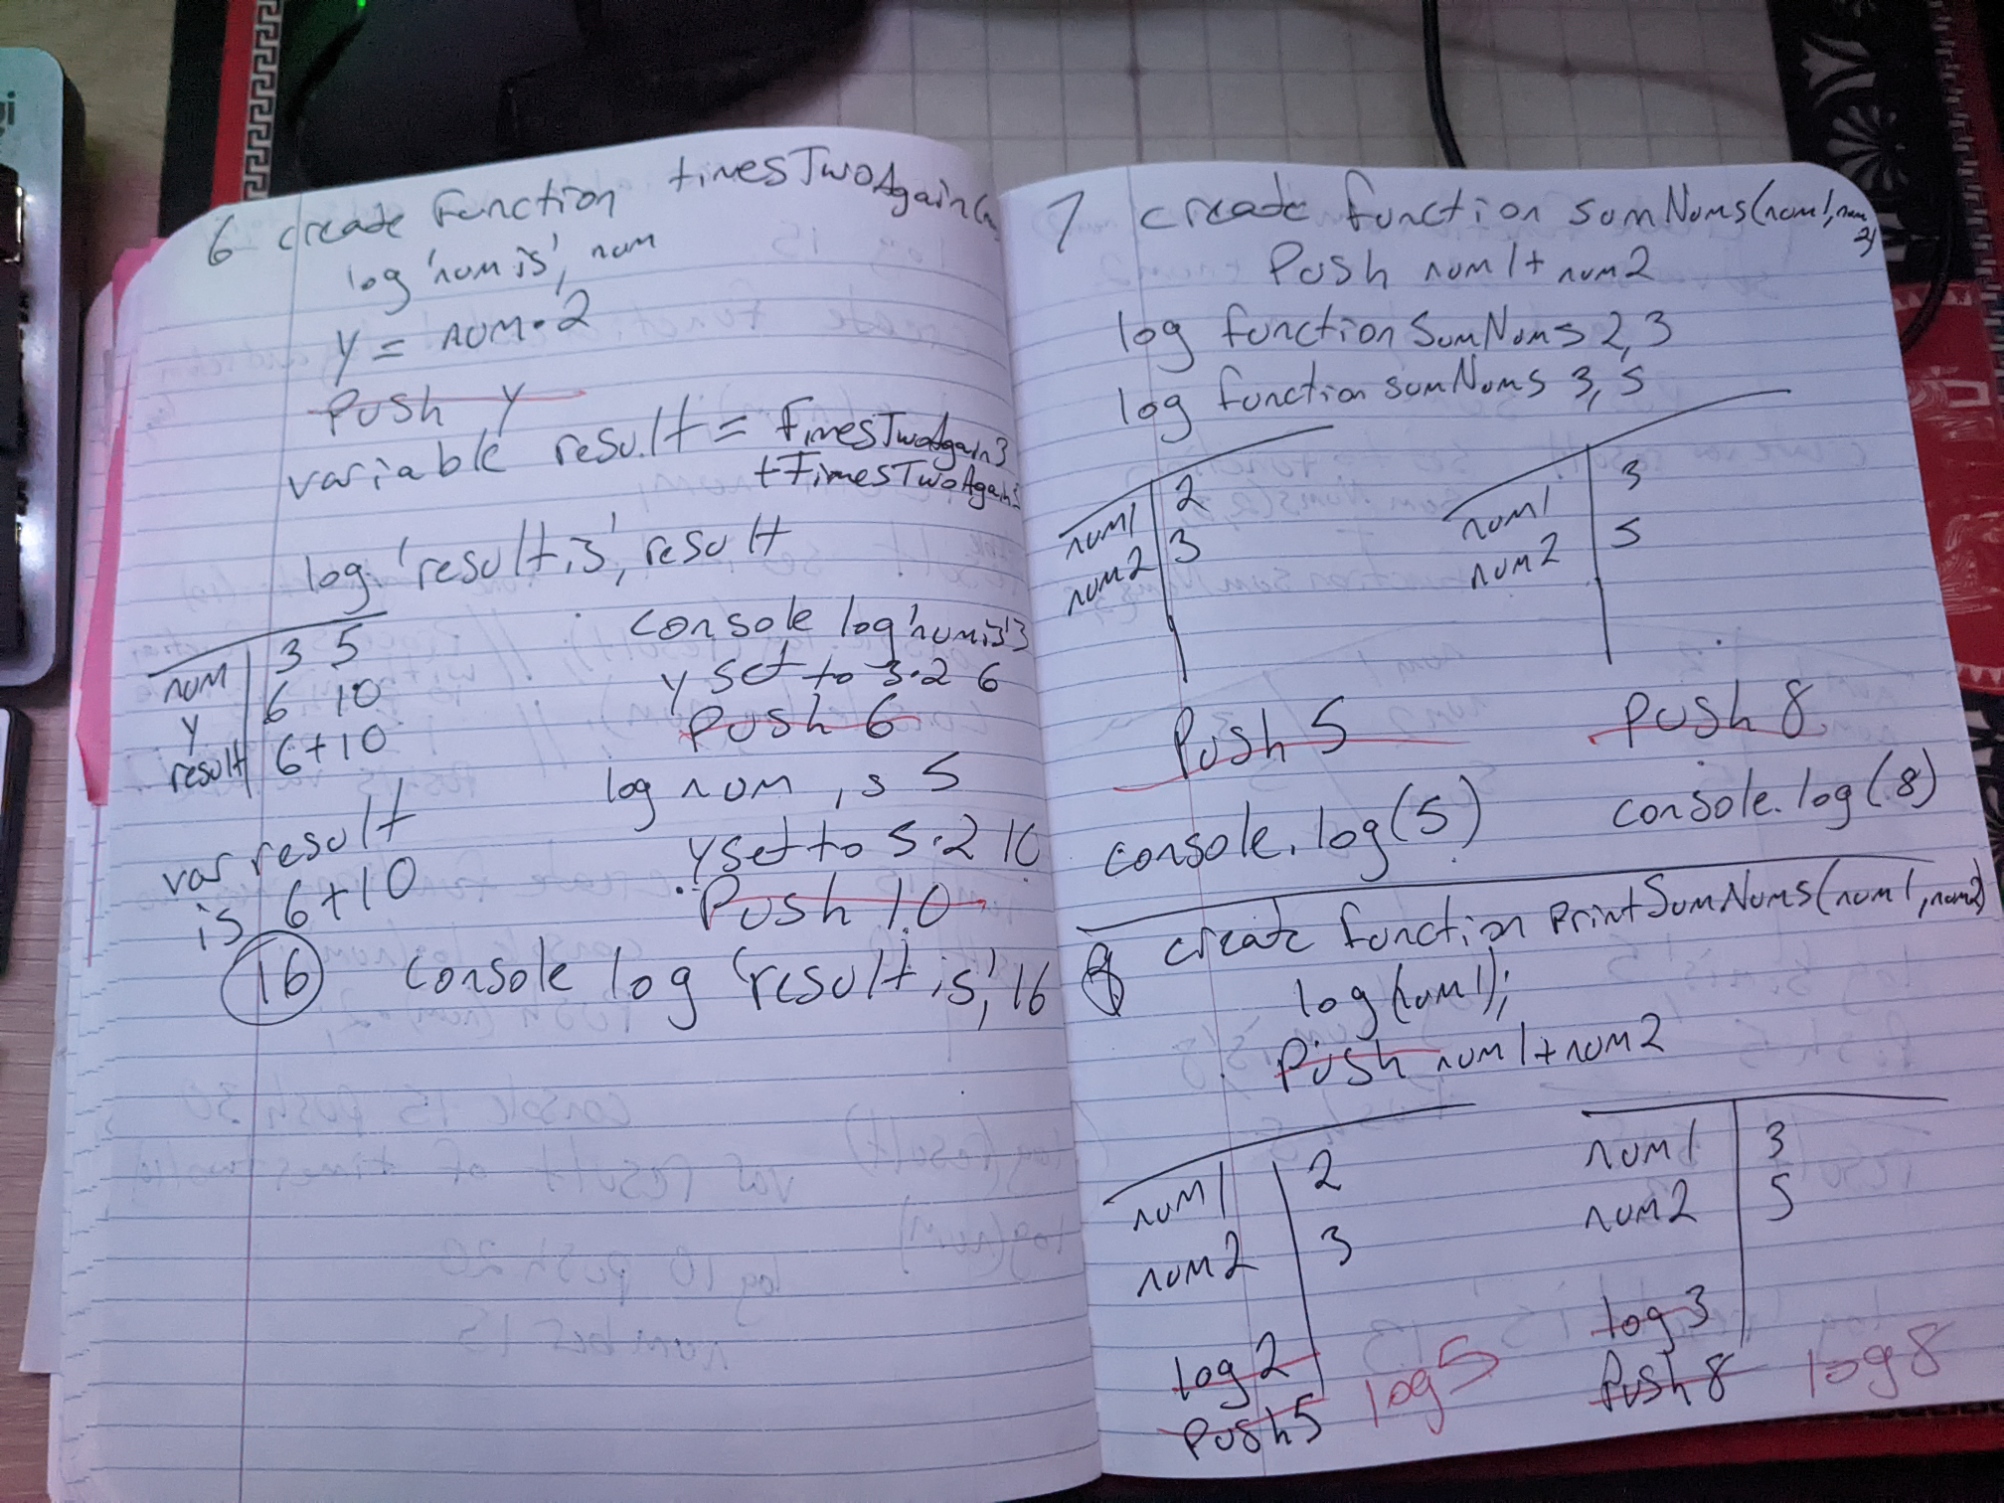 6 create function timesTwoAgain(
log 'num is', num
y = num · 2
Push y
variable result = timesTwoAgain3
+ timesTwoAgain
log 'result is', result
num 3 5
y 6 10
result 6+10
var result
is 6+10
16
console log 'num is' 3
y set to 3·2 6
Push 6
log num is 5
y set to 5·2 10
Push 10
console log 'result is', 16
7 create function sumNums(num1, num
2)
Push num1 + num2
log function sumNums 2,3
log function sumNums 3,5
num1 2
num2 3
num1 3
num2 5
Push 5
Push 8
console.log(5)
console.log(8)
8 create function printSumNums(num1, num2)
log(num1);
Push num1 + num2
num1 2
num2 3
log 2
Push 5 log 5
num1 3
num2 5
log 3
Push 8 log 8